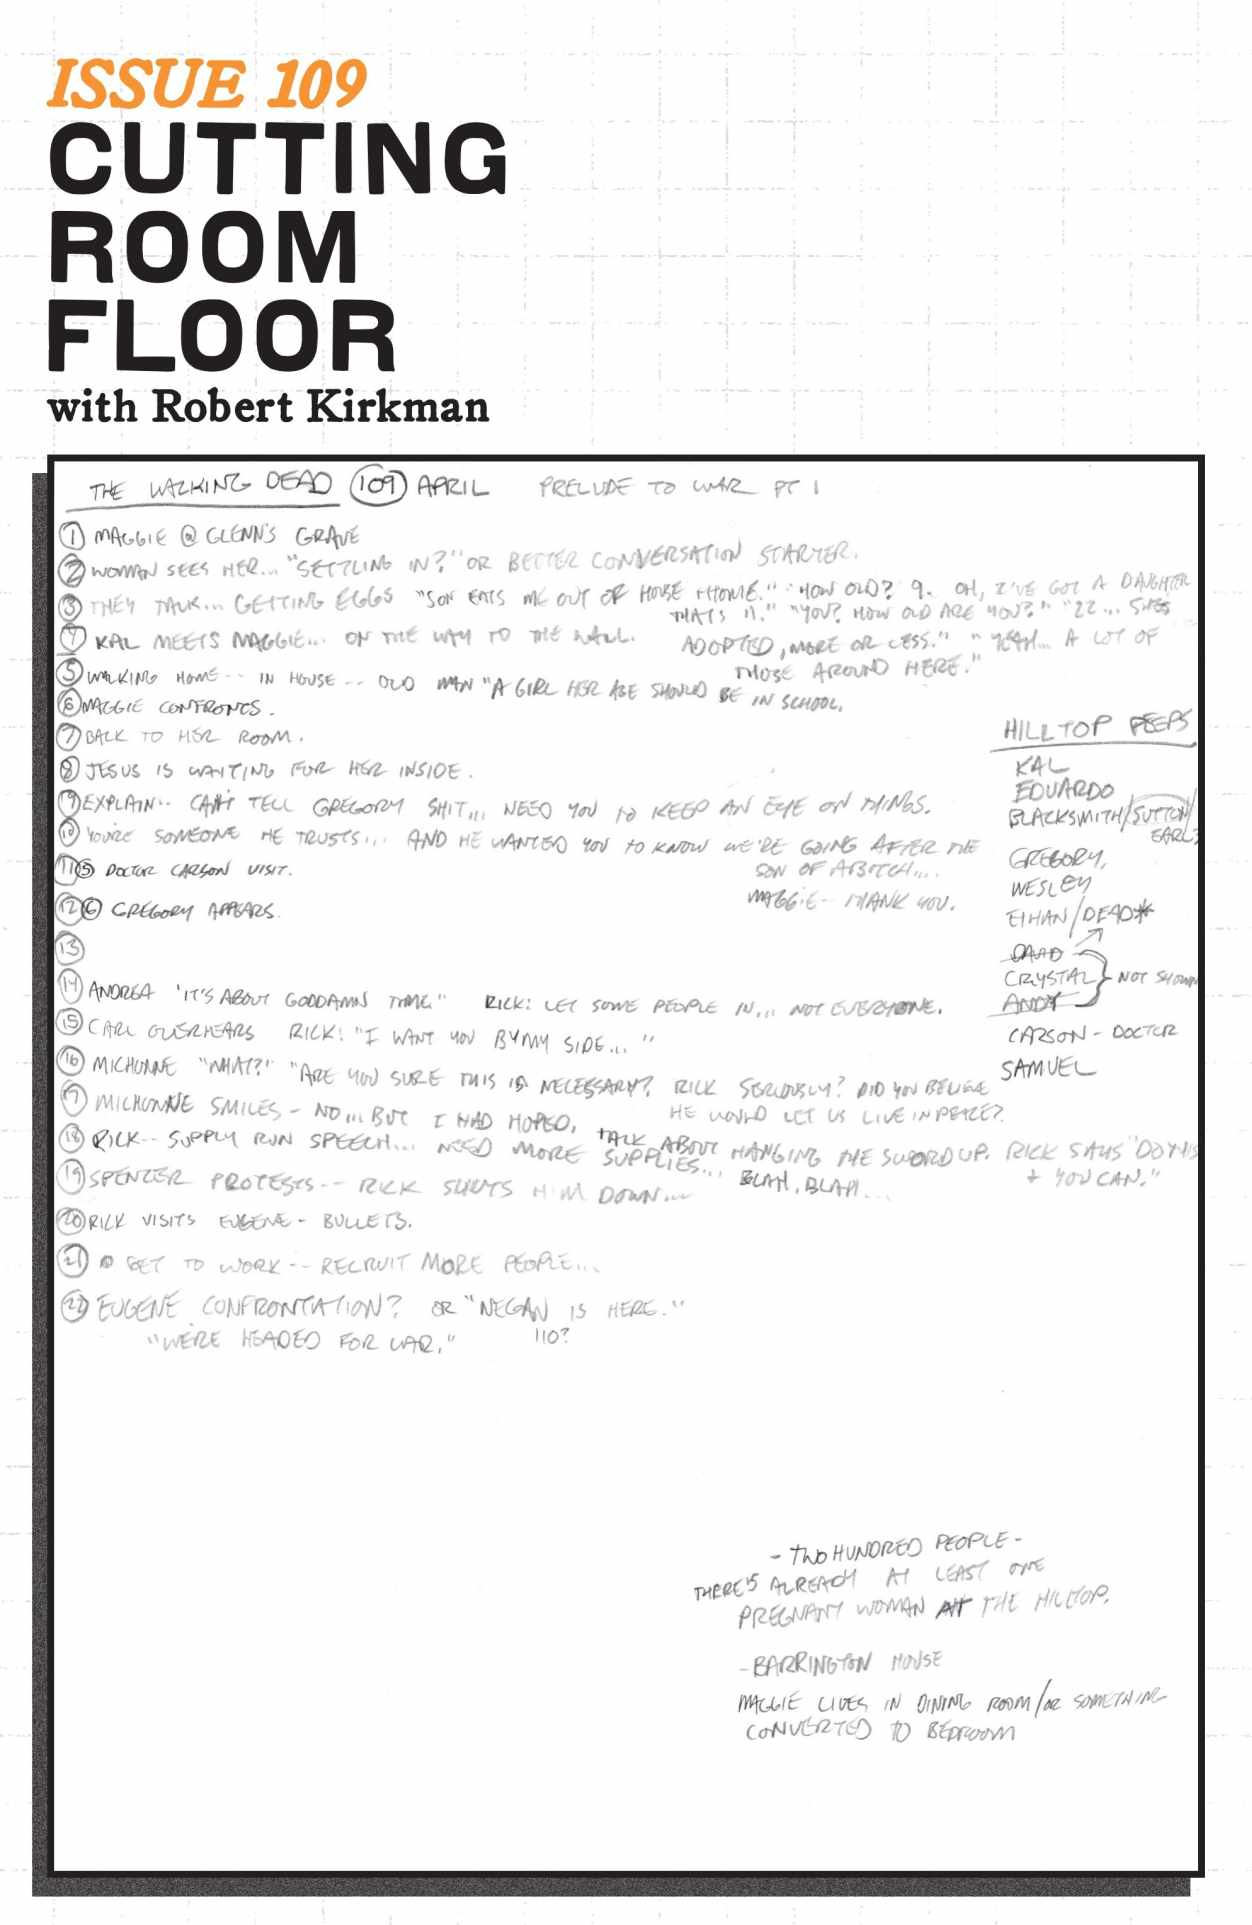 ISSUE 109
CUTTING
ROOM
FLOOR
with Robert Kirkman
THE WALKING DEAD 109 APRIL PRELUDE TO WAR PT 1
1 MAGGIE @ GLENN'S GRAVE
2 WOMAN SEES HER... "SETTLING IN?" OR BETTER CONVERSATION STARTER.
3 THEY TALK... GETTING EGGS "SON EATS ME OUT OF HOUSE + HOME." "HOW OLD? 9. OH, I'VE GOT A DAUGHTER
THAT'S 11." "YOU? HOW OLD ARE YOU?" "22... SHE'S
ADOPTED, MORE OR LESS." "YEAH... A LOT OF
THOSE AROUND HERE."
4 KAL MEETS MAGGIE... ON THE WAY TO THE WALL.
5 WALKING HOME -- IN HOUSE -- OLD MAN "A GIRL HER AGE SHOULD BE IN SCHOOL.
6 MAGGIE CONFRONTS.
7 BACK TO HER ROOM.
8 JESUS IS WAITING FOR HER INSIDE.
9 EXPLAIN.. CAN'T TELL GREGORY SHIT... NEED YOU TO KEEP AN EYE ON THINGS.
10 YOU'RE SOMEONE HE TRUSTS... AND HE WANTED YOU TO KNOW WE'RE GOING AFTER THE
SON OF A BITCH....
MAGGIE -- THANK YOU.
11 5 DOCTOR CARSON VISIT.
12 6 GREGORY APPEARS.
13
14 ANDREA "IT'S ABOUT GODDAMN TIME." RICK: LET SOME PEOPLE IN... NOT EVERYONE.
15 CARL OVERHEARS RICK: "I WANT YOU BY MY SIDE..."
16 MICHONNE "WHAT?!" "ARE YOU SURE THIS IS NECESSARY? RICK SERIOUSLY? DID YOU BELIEVE
HE WOULD LET US LIVE IN PEACE?
17 MICHONNE SMILES - NO... BUT I HAD HOPED.
TALK ABOUT HANGING THE SWORD UP. RICK SAYS "DO THIS
+ YOU CAN."
18 RICK -- SUPPLY RUN SPEECH... NEED MORE SUPPLIES... BLAH, BLAH...
19 SPENCER PROTESTS -- RICK SHUTS HIM DOWN...
20 RICK VISITS EUGENE - BULLETS.
21 GET TO WORK -- RECRUIT MORE PEOPLE...
22 EUGENE CONFRONTATION? OR "NEGAN IS HERE."
"WE'RE HEADED FOR WAR." 110?
HILLTOP PEEPS
KAL
EDUARDO
BLACKSMITH/SUTTON/
EARL?
GREGORY,
WESLEY
ETHAN/DEAD*
DAVID
CRYSTAL } NOT SHOWN
ANDY
CARSON - DOCTOR
SAMUEL
- TWO HUNDRED PEOPLE -
THERE'S ALREADY AT LEAST ONE
PREGNANT WOMAN AT THE HILLTOP.
- BARRINGTON HOUSE
MAGGIE LIVES IN DINING ROOM/OR SOMETHING
CONVERTED TO BEDROOM